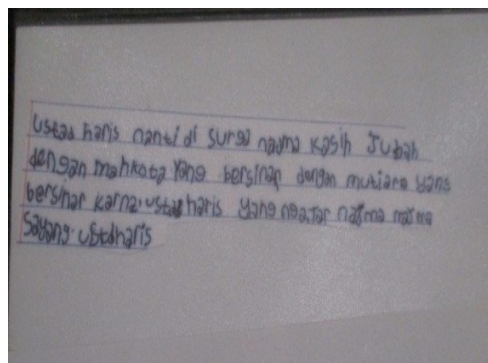 ustad haris nanti di surga najma kasih Jubah
dengan mahkota yang bersinar dengan mutiara yang
bersinar karna ustad haris yang ngajar najma najma
sayang ustdharis